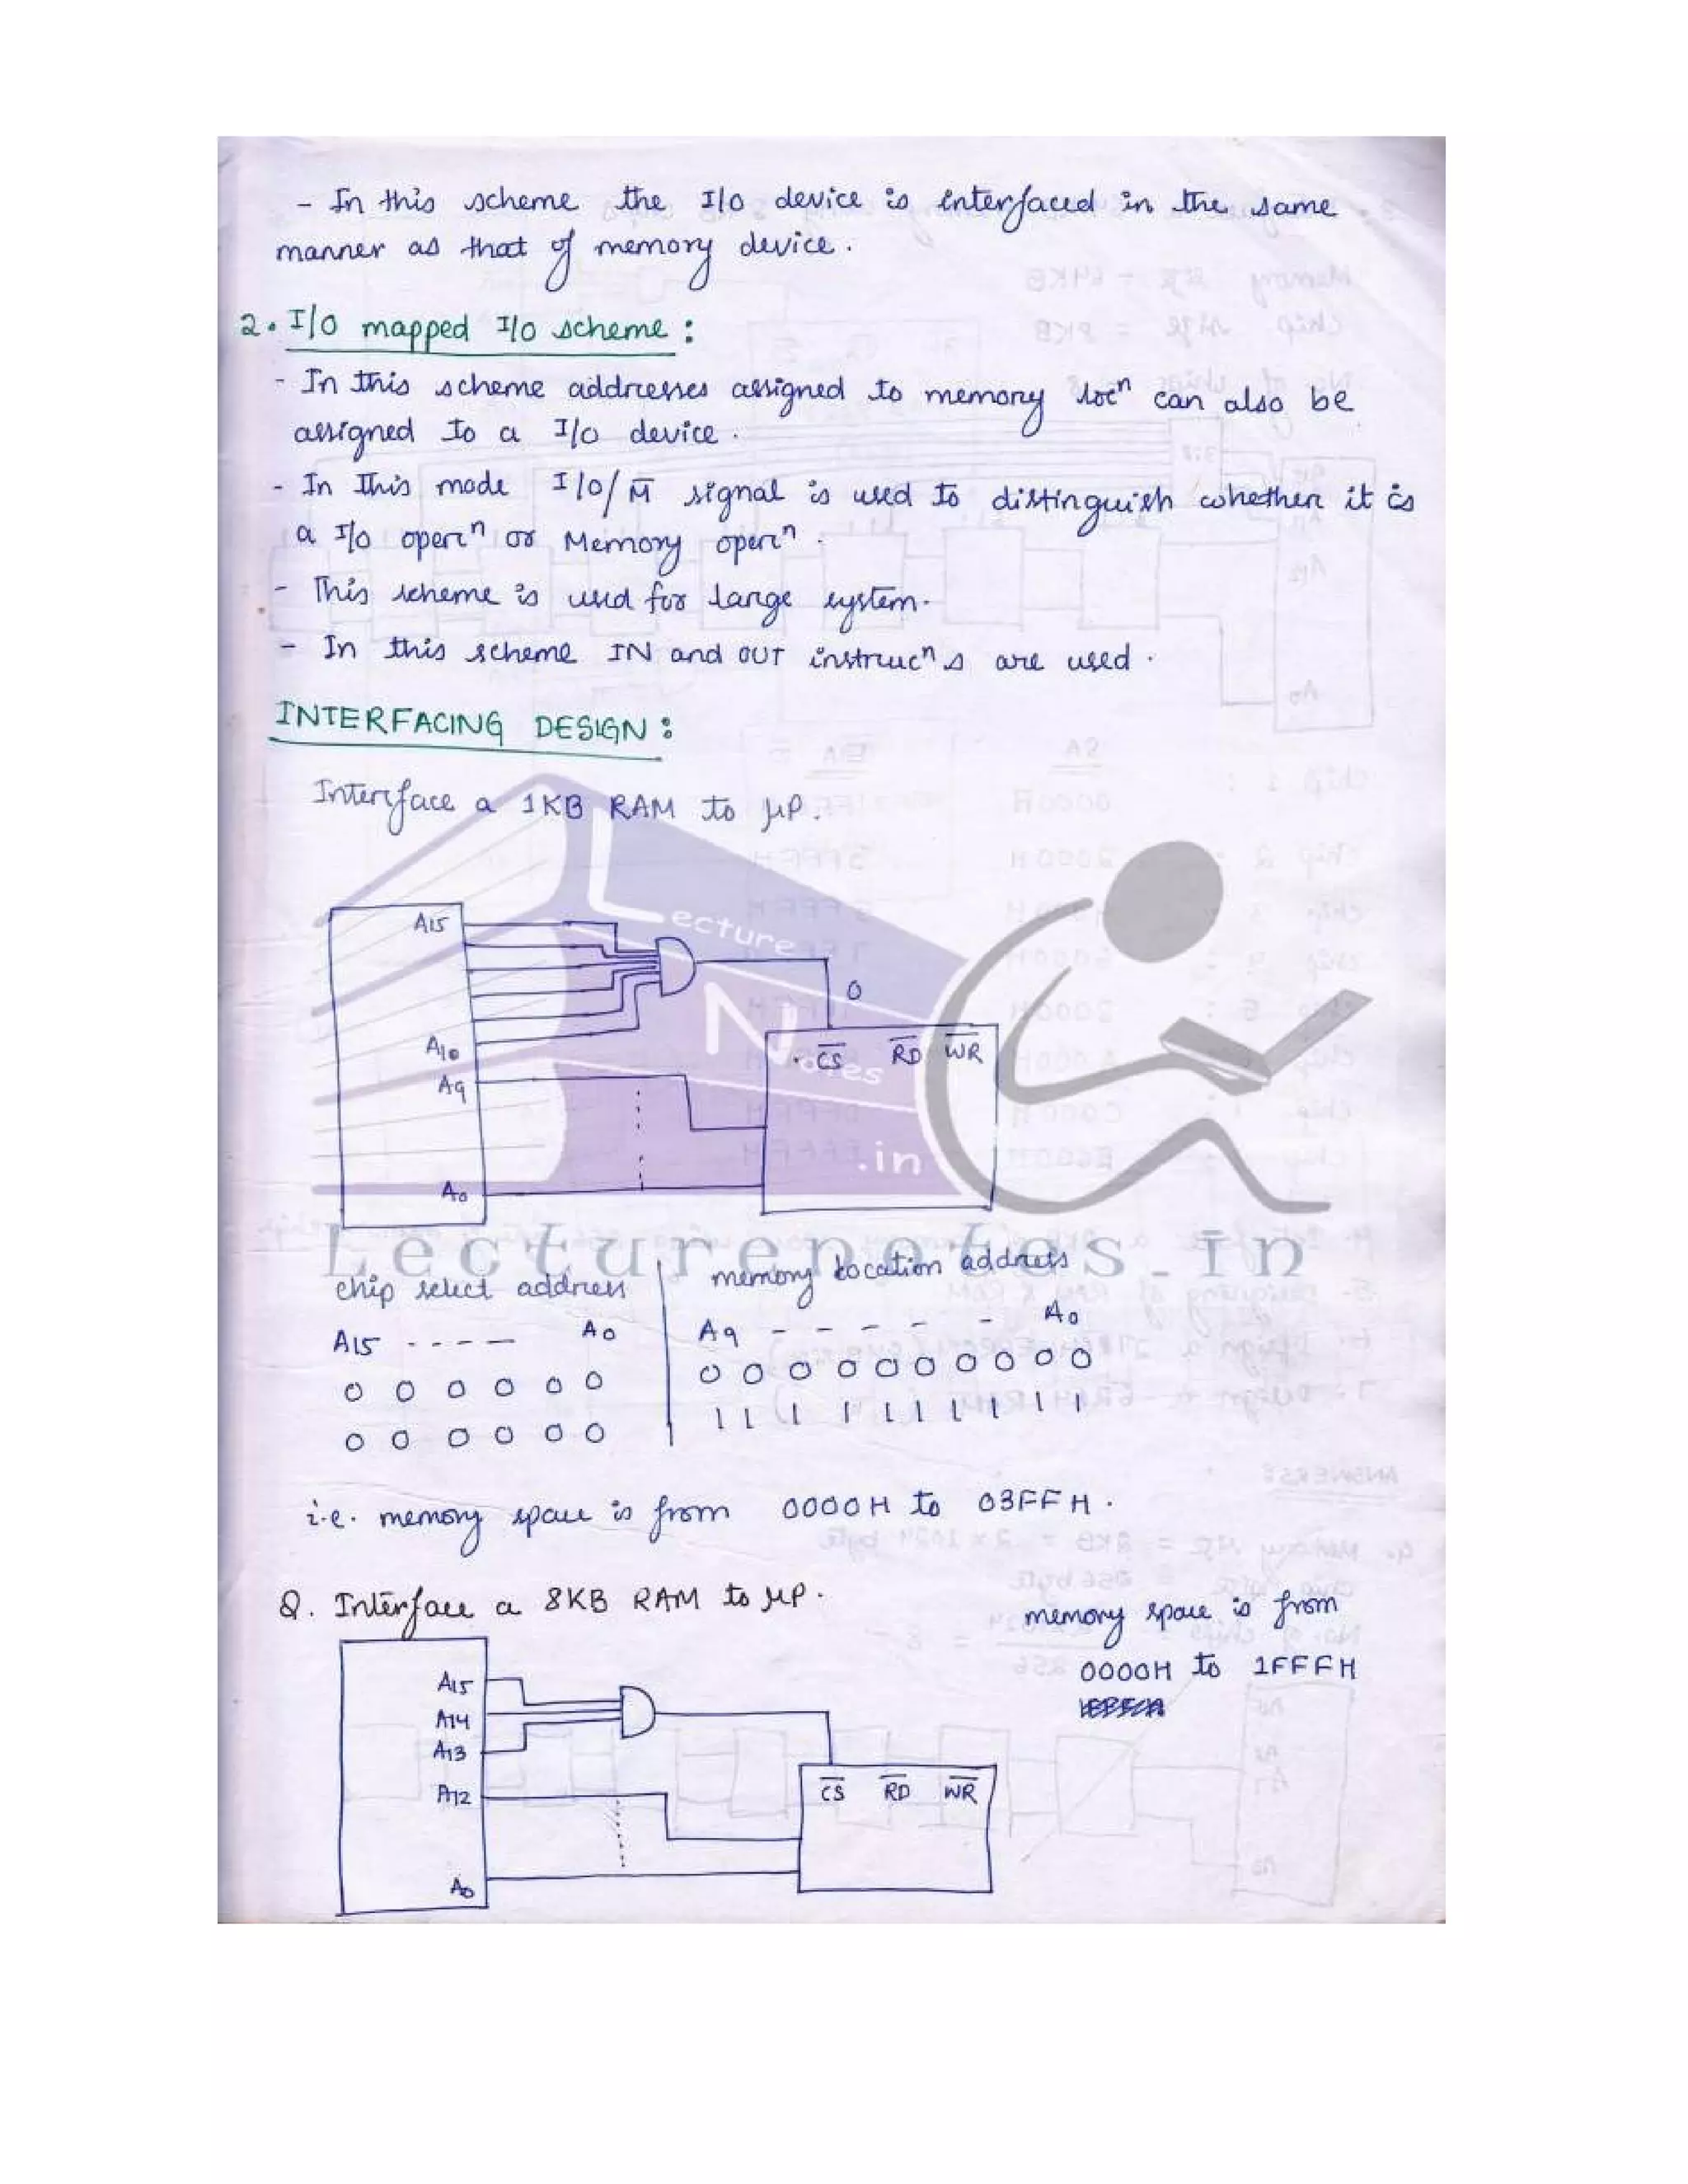 - In this scheme the I/O device is interfaced in the same
manner as that of memory device.
2. I/O mapped I/O scheme :
- In this scheme addresses assigned to memory locⁿ can also be
assigned to a I/O device.
- In this mode I/O/M̅ signal is used to distinguish whether it is
a I/O operⁿ or Memory operⁿ.
- This scheme is used for large system.
- In this scheme IN and OUT instrucⁿs are used.
INTERFACING DESIGN :
Interface a 1KB RAM to μP.
A15
A10
A9
A0
0
C̅S̅ R̅D̅ W̅R̅
Lecture
Notes
.in
Lecturenotes.in
chip select address | memory location address
A15 - - - - A0 | A9 - - - - - A0
0 0 0 0 0 0 | 0 0 0 0 0 0 0 0 0 0
0 0 0 0 0 0 | 1 1 1 1 1 1 1 1 1 1
i.e. memory space is from 0000H to 03FFH.
Q. Interface a 8KB RAM to μP.
memory space is from
0000H to 1FFFH
A15
A14
A13
A12
A0
C̅S̅ R̅D̅ W̅R̅